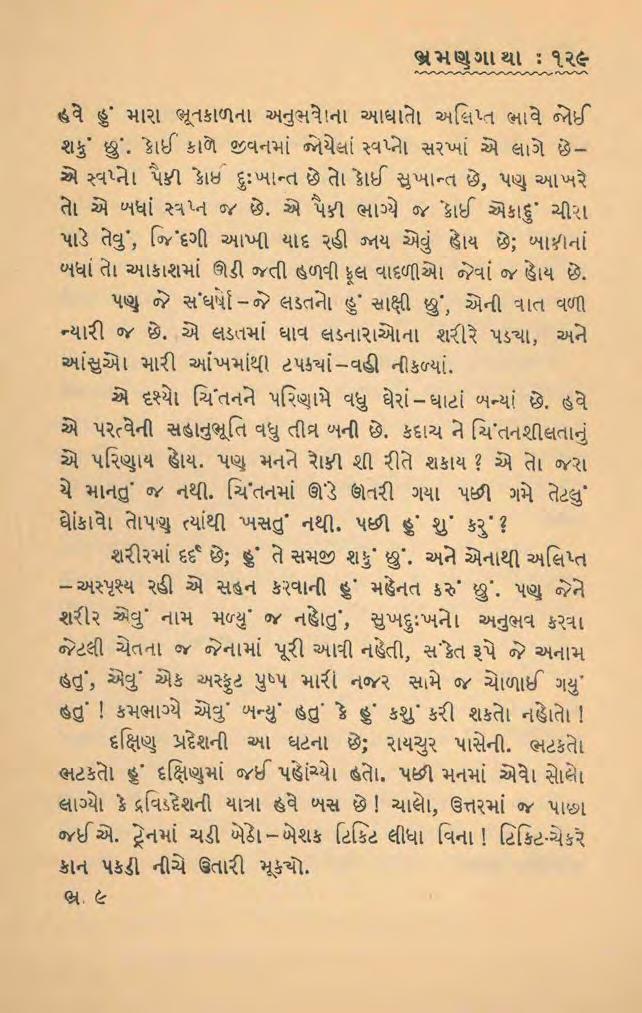 ભ્રમણગાથા : ૧૨૯
હવે હું મારા ભૂતકાળના અનુભવોના આઘાતો અલિપ્ત ભાવે જોઈ
શકું છું. કોઈ કાળે જીવનમાં જોયેલાં સ્વપ્નો સરખાં એ લાગે છે–
એ સ્વપ્નો પૈકી કોઈ દુઃખાન્ત છે તો કોઈ સુખાન્ત છે, પણ આખરે
તો એ બધાં સ્વપ્ન જ છે. એ પૈકી ભાગ્યે જ કોઈ એકાદું ચીરા
પાડે તેવું, જિંદગી આખી યાદ રહી જાય એવું હોય છે; બાકીનાં
બધાં તો આકાશમાં ઊડી જતી હળવી ફૂલ વાદળીઓ જેવાં જ હોય છે.
પણ જે સંઘર્ષો–જે લડતનો હું સાક્ષી છું, એની વાત વળી
ન્યારી જ છે. એ લડતમાં ઘાવ લડનારાઓના શરીરે પડ્યા, અને
આંસુઓ મારી આંખમાંથી ટપક્યાં–વહી નીકળ્યાં.
એ દૃશ્યો ચિંતનને પરિણામે વધુ ઘેરાં–ઘાટાં બન્યાં છે. હવે
એ પરત્વેની સહાનુભૂતિ વધુ તીવ્ર બની છે. કદાચ ને ચિંતનશીલતાનું
એ પરિણાય હોય. પણ મનને રોકી શી રીતે શકાય ? એ તો જરા
યે માનતું જ નથી. ચિંતનમાં ઊંડે ઊતરી ગયા પછી ગમે તેટલું
ઘોંકાવો તોપણ ત્યાંથી ખસતું નથી. પછી હું શું કરું ?
શરીરમાં દર્દ છે; હું તે સમજી શકું છું. અને એનાથી અલિપ્ત
–અસ્પૃશ્ય રહી એ સહન કરવાની હું મહેનત કરું છું. પણ જેને
શરીર એવું નામ મળ્યું જ નહોતું, સુખદુઃખનો અનુભવ કરવા
જેટલી ચેતના જ જેનામાં પૂરી આવી નહેતી, સંકેત રૂપે જે અનામ
હતું, એવું એક અસ્ફુટ પુષ્પ મારી નજર સામે જ ચોળાઈ ગયું
હતું ! કમભાગ્યે એવું બન્યું હતું કે હું કશું કરી શકતો નહોતો !
દક્ષિણ પ્રદેશની આ ઘટના છે; રાયચુર પાસેની. ભટકતો
ભટકતો હું દક્ષિણમાં જઈ પહોંચ્યો હતો. પછી મનમાં એવો સોલો
લાગ્યો કે દ્રવિડદેશની યાત્રા હવે બસ છે ! ચાલો, ઉત્તરમાં જ પાછા
જઈએ. ટ્રેનમાં ચડી બેઠો–બેશક ટિકિટ લીધા વિના ! ટિકિટ-ચેકરે
કાન પકડી નીચે ઉતારી મૂક્યો.
ભ્ર. ૯